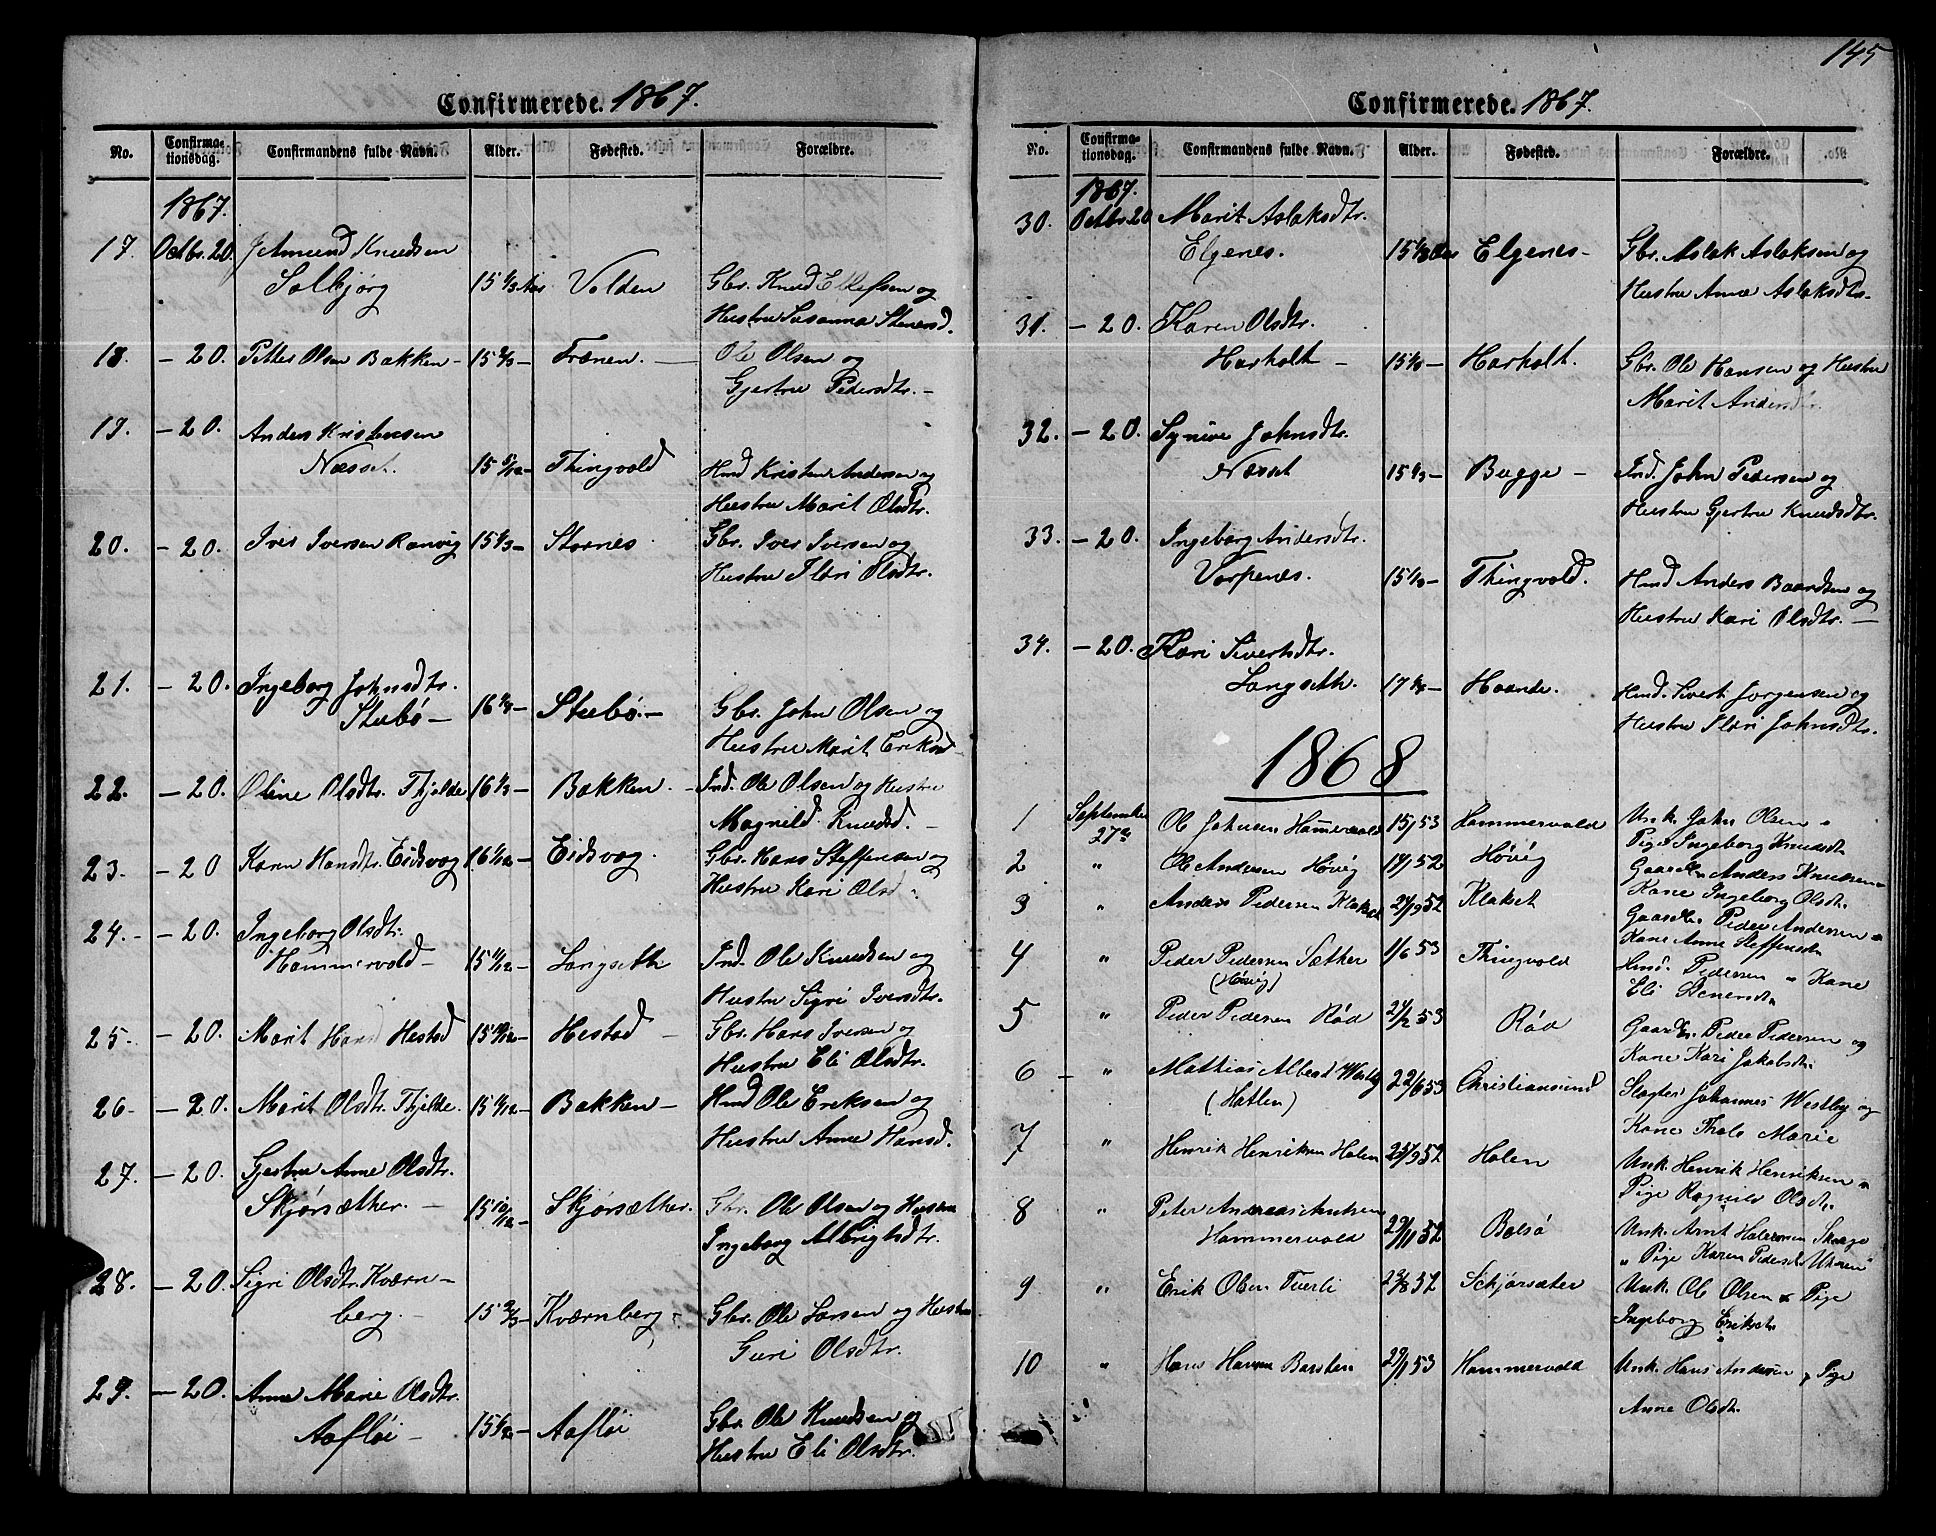 Confirmerede. 1867.
No. Confirmationsdag. Confirmandens fulde Navn. Alder. Fødested. Forældre.
1867.
17. Octbr. 20. Amund Knudsen
Solbjørg 15 1/3 Aar Volden Gbr. Knud og
Hustru Susanna Stenersd.
18. - 20. Petter Olsen Bakken - 15 2/3 - Frænen. - Ole Olsen og
Gjertru Pedersdtr. -
19. - 20. Anders Kristensen
Næsset. 15 5/12 - Thingvold Hmd Kristen Andersen og
Hustru Marit Olsdtr.
20. - 20. Iver Iversen Ranvig 15 1/3 - Stornes Gbr. Iver Iversen og
Hustru Olsdtr.
21. - 20. Ingeborg Johnsdtr.
Stubø - 16 1/3 - Stubø. - Gbr. John Olsen og
Hustru Marit Eriksd
22. - 20. Oline Olsdtr. Thjelde 16 1/3 - Bakken. - Ind. Ole Olsen og Hustru
Magnild Knudsd. -
23. - 20 Karen Hansdtr. Eidsvog 16 1/12 - Eidsvog. Gbr. Hans Steffensen og
Hustru Kari Olsd
24. - 20. Ingeborg Olsdtr.
Hammervold - 15 11/12 - Langseth Ind. Ole Knudsen og
Hustru Sigri Iversdtr.
25. - 20. Marit Hansd Hestad 15 10/12 - Hestad - Gbr. Hans Iversen og
Hustru Eli Olsdtr.
26. - 20. Marit Olsdtr. Thjelde. 15 11/12 - Bakken - Hmd Ole Eriksen og
Hustru Anne Hansd.
27. - 20. Gjertru Anne Olsdtr.
Skjørsæther. - 15 10/12 - Skjørsæther. Gbr. Ole Olsen og Hustru
Ingeborg Albrigtsdtr.
28. - 20. Sigri Olsdtr. Kværn-
berg. - 15 2/3 - Kværnberg - Gbr. Ole Larsen og Hustru
Guri Olsdtr.
29. - 20. Anne Marie Olsdtr.
Aafløi - 15 1/2 - Aafløi Gbr. Ole Knudsen og
Hustru Eli Olsdtr.
145
Confirmerede. 1867.
No. Confirmationsdag. Confirmandens fulde Navn. Alder. Fødested. Forældre.
1867.
30. Octbr. 20 Marit Aslaksdtr.
Elgenes. 15 1/3 Aar Elgenes - Gbr. Aslak Aslaksen og
Hustru Anne Aslaksdtr.
31. - 20. Karen Olsdtr.
Harholt - - Harholt. Gbr. Ole Hansen og Hustru
Marit Andersdtr.
32. - 20. Synive Johnsdtr.
Næsset 15 1/3 - Bugge - Ind. John Pedersen og
Hustru Gjertru Knudsdtr.
33. - 20. Ingeborg Andersdtr.
Vorpenes. 15 1/3 - Thingvold. Hmd Anders Baardsen og
Hustru Kari Olsdtr. -
34. - 20. Kari Sivertsdtr.
Langseth. - Haande. Hmd. Sivert Jørgensen og
Hustru Johnsdtr.
1868
1 September 27de Ole Johnsen Hammervold 15/1 53 Hammervold Unk. John Olsen "
Pige Ingeborg Knudsdt
2 " Ole Andersen Høvig 52 Høvig Gaardbr. Anders Knudsen
Kone Ingeborg Olsdt.
3 " Anders Pedersen Klokset 21/9 52 Klokset Gaardbr. Peder Andersen
Kone Anne Steffensdt
4 " Peder Pedersen Sæther 1/6 53 Thingvold Hmd. Pedersen " Kone
(Høvig) Eli Stenersdt
5 " Peder Pedersen Rød 21/2 53 Rød Gaardbr. Peder Pedersen og
Kone Kari Jakobsdt.
6 - " Mathias Albert Westby 22/6 53 Christiansund Slagter Johannes Westby og
(Hatlen) Kone Thale Marie
7 " Henrik Henriksen Holen 23/9 52 Holen Unk. Henrik Henriksen
Pige Ragnild Olsdt.
8 " Peter Andreas Arntsen
Hammervold 29/11 52 Bolsø Unk. Arnt
" Pige Karen Pedersdt
9 " Erik Olsen Tverli 23/8 52 Schjørsæter Unk. Ole Olsen & Pige
Ingeborg Eriksdt
10 " Hans Hansen Barsten 29/1 53 Hammervold Unk. Hans Andersen, Pige
Anne Olsdt.